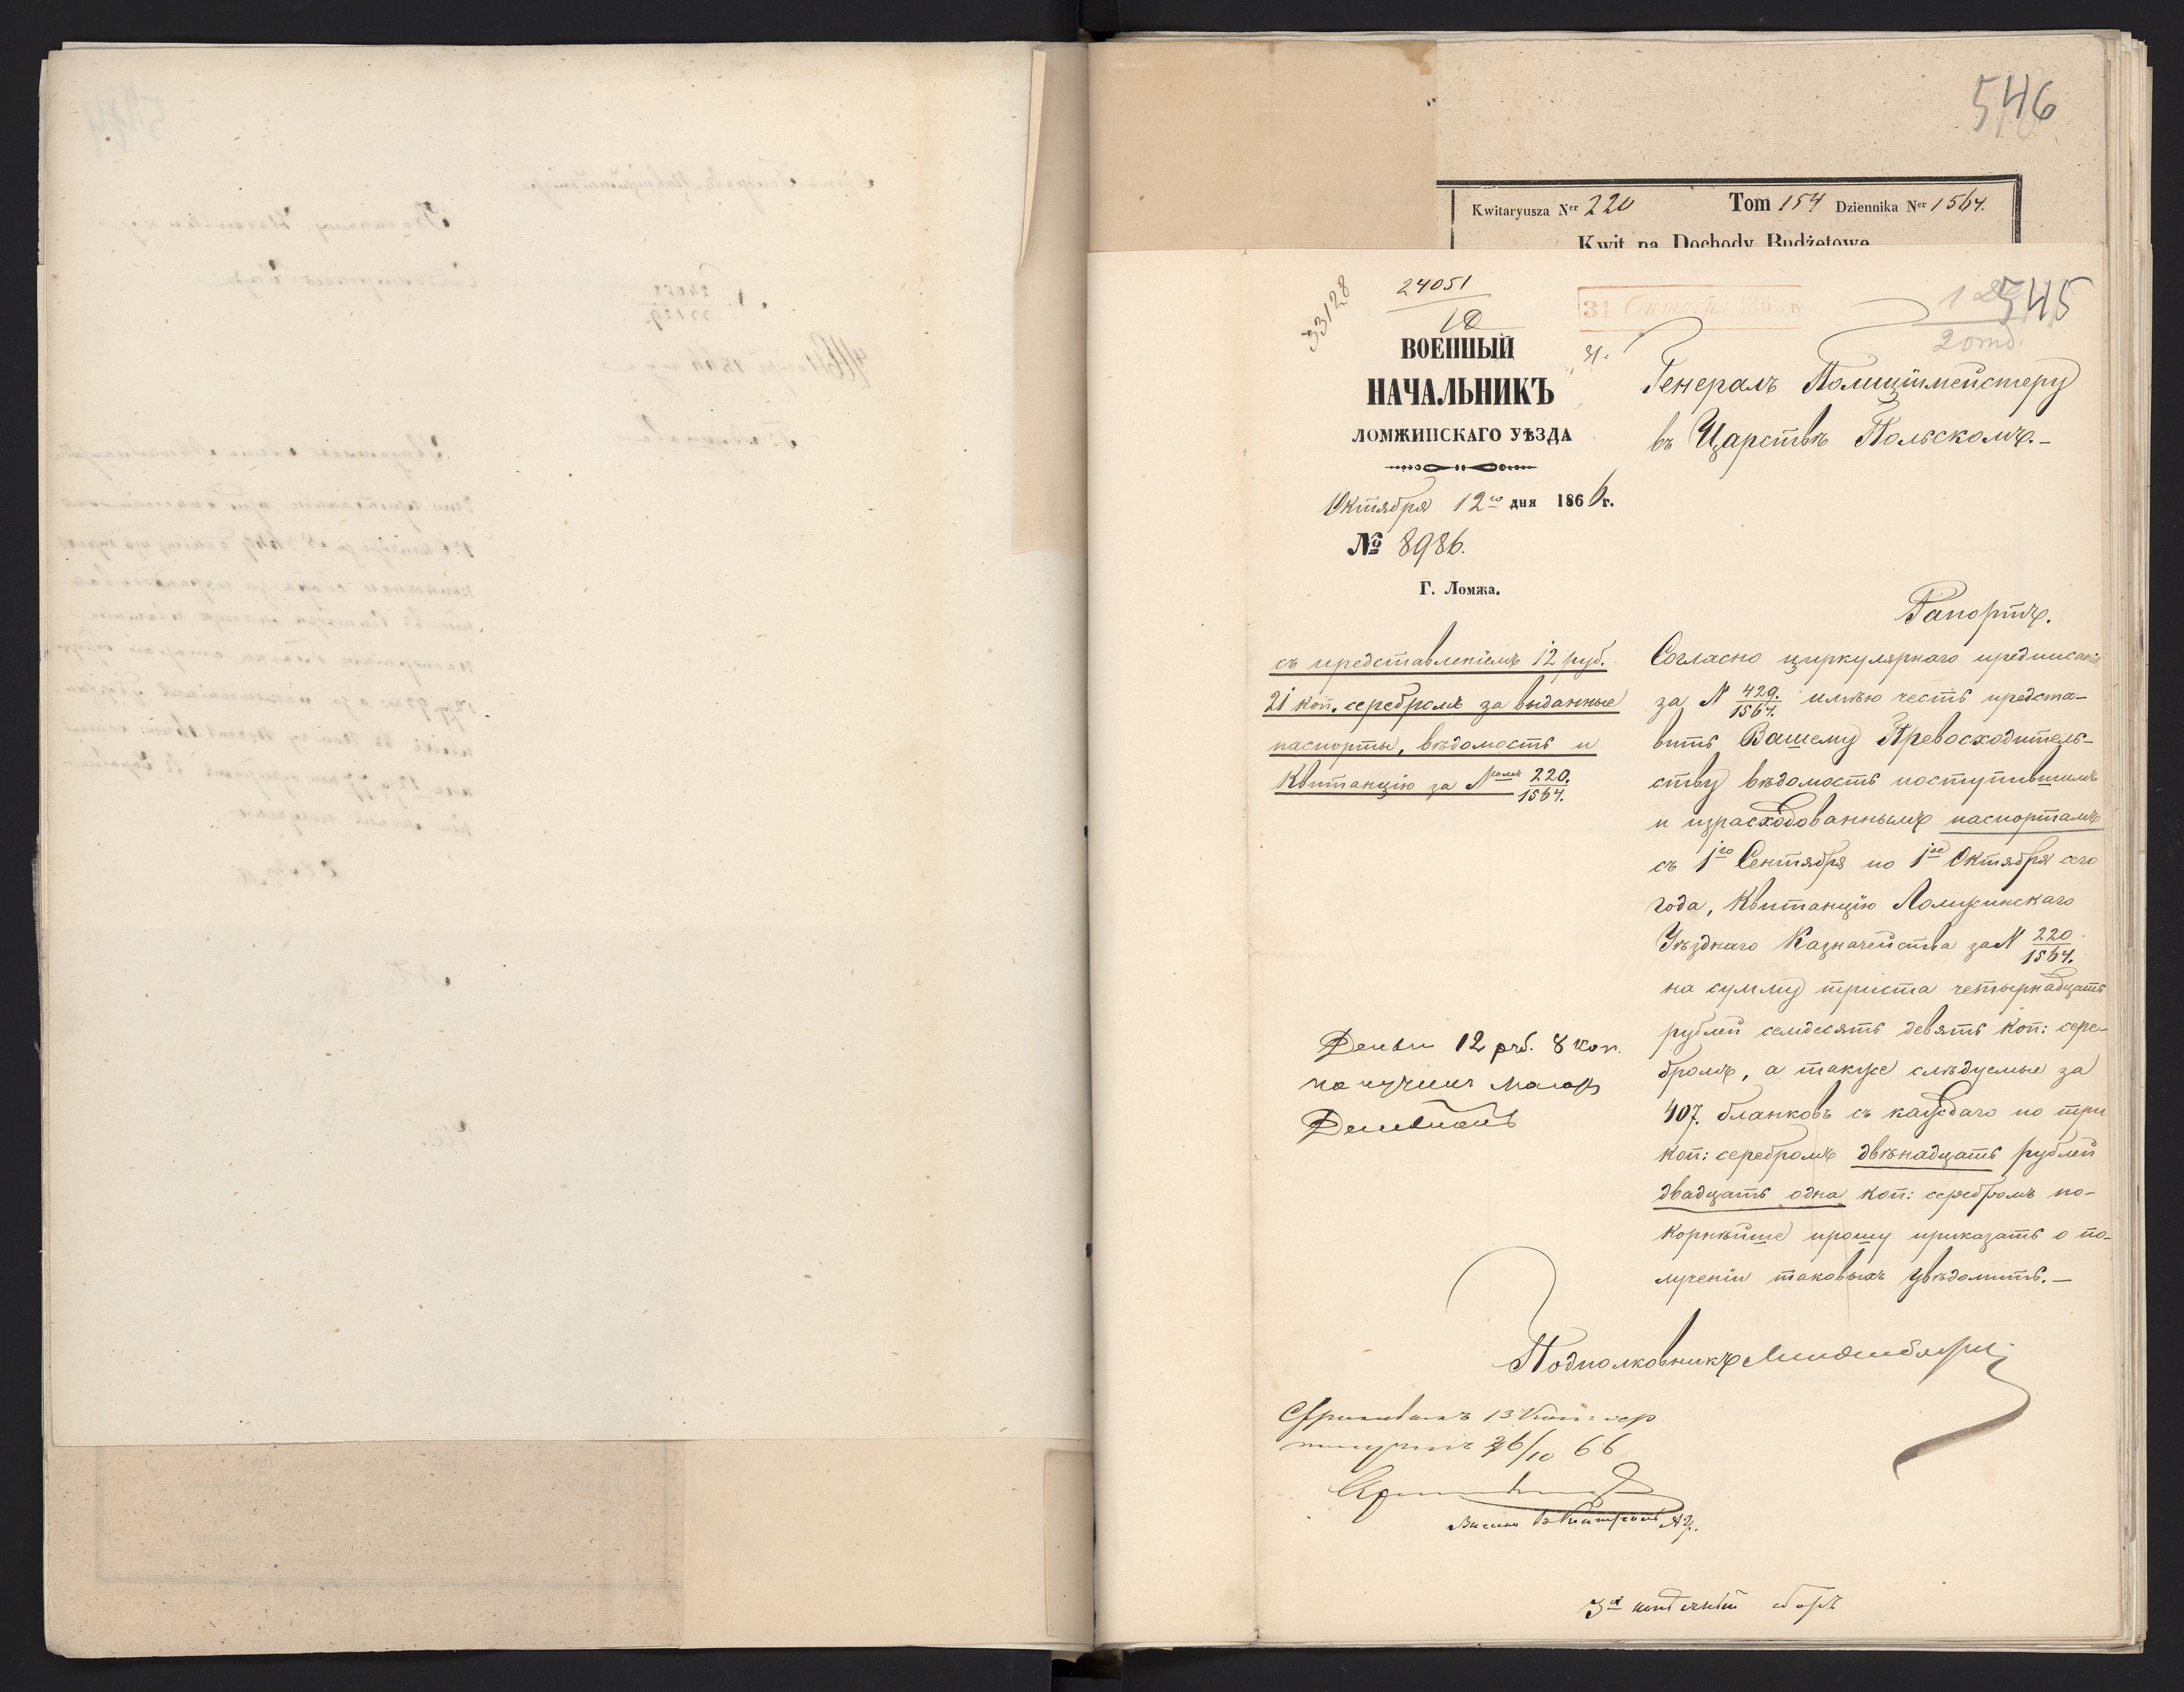 546
Kwitaryusza Ner 220 Tom 154 Dziennika Ner 1564.
Kwit na Dochody Budżetowe
33128
24051
10
31
545
2 отд.
ВОЕННЫЙ
НАЧАЛЬНИКЪ
ЛОМЖИНСКАГО УѢЗДА
Октября 12го дня 1866 г.
№ 8986.
Г. Ломжа.
Генералъ Полиціймейстеру
въ Царствѣ Польскомъ.—
Рапортъ.
съ представленіемъ 12 руб.
21 коп. серебромъ за выданные
паспорты, вѣдомость и
Квитанцію за №омъ 220./1564.
Согласно циркулярнаго предписанія
за N 429./1564. имѣю честь предста-
вить Вашему Превосходитель-
ству вѣдомость поступившимъ
и израсходованнымъ паспортамъ
съ 1го Сентября по 1ое Октября сего
года, Квитанцію Ломжинскаго
Уѣзднаго Казначейства за N 220/1564.
на сумму триста четырнадцать
рублей семдесятъ девять коп: сере-
бромъ, а также слѣдуемые за
407. бланковъ съ каждаго по три
коп: серебромъ двѣнадцать рублей
двадцать одна коп: серебромъ по-
корнѣйше прошу приказать о по-
лученіи таковыхъ увѣдомить.—
Деньги 12 руб. 8 коп.
получилъ Маіоръ
Подполковникъ
13 коп: сер
получилъ 26/10 66
3х копѣечный сборъ